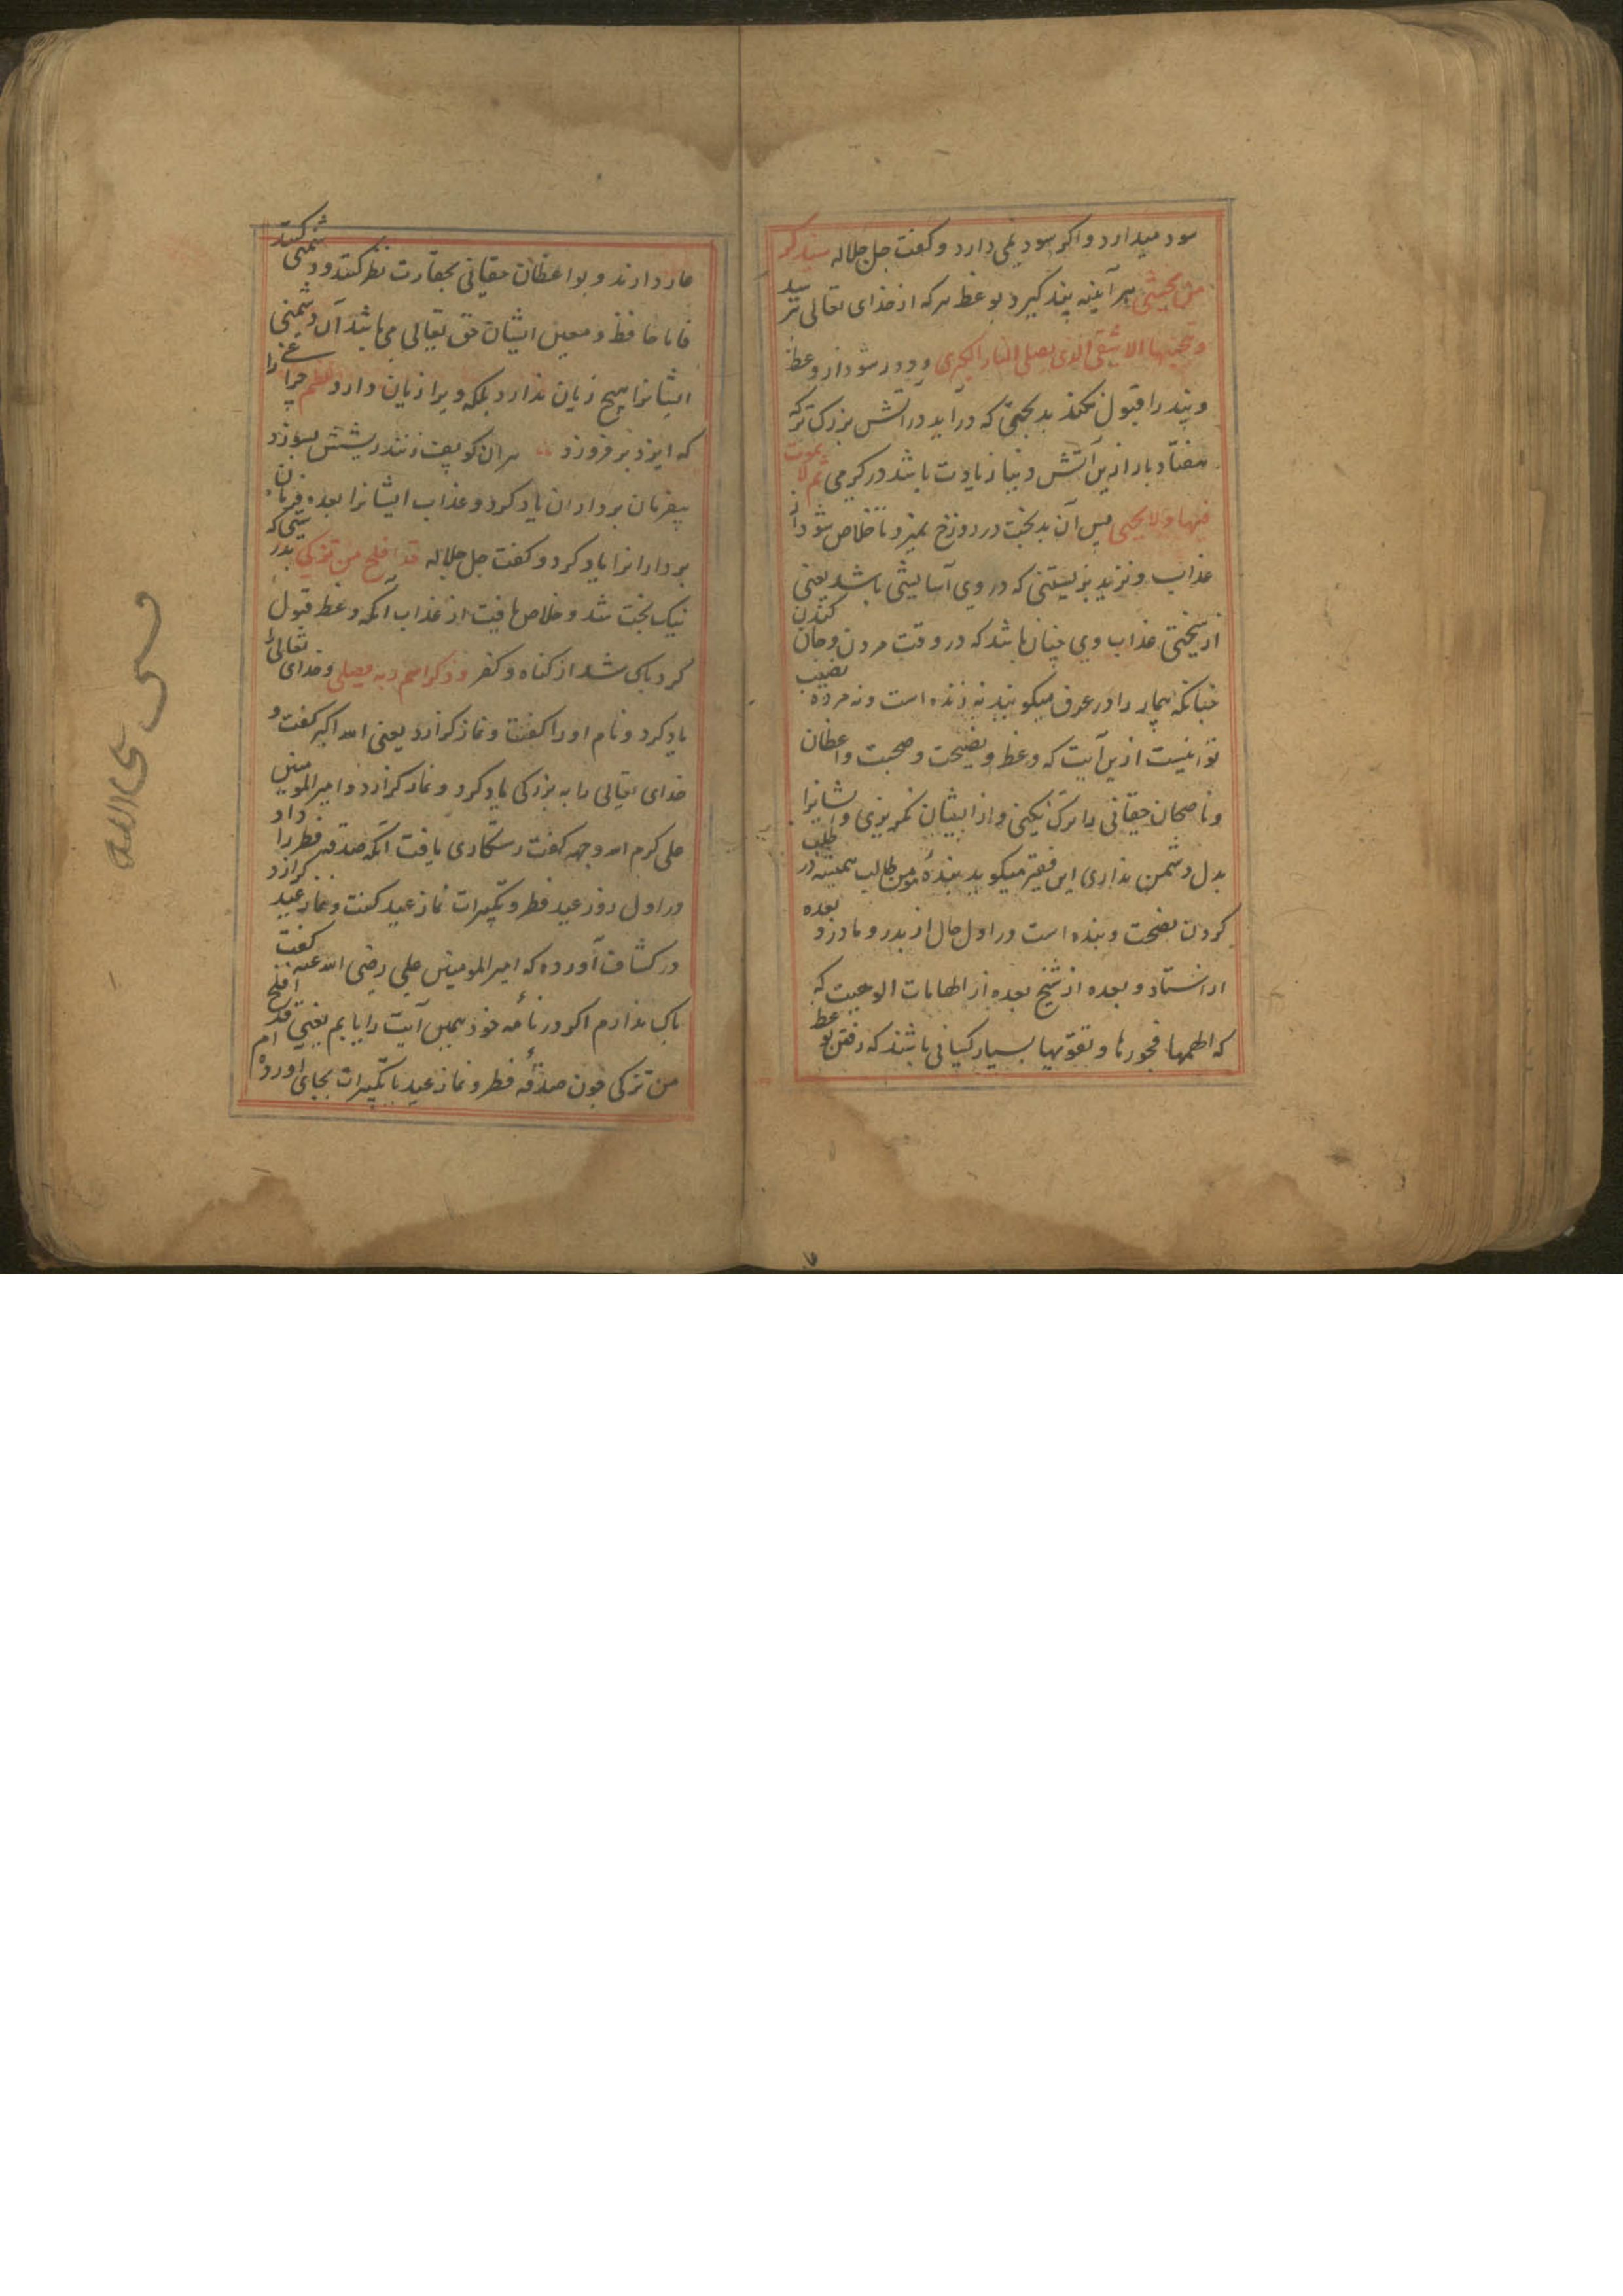 سود میدارد و اکر سود نمی دارد و کفت جل جلاله سیذکر
من یخشی هر آینه پند کیرد بوعظ هر که از خدای تعالی ترسد
و یتجنبها الاشقی الذی یصلی النار الکبری و دور شود از وعظ
و پند را قبول نکند بدبختی که در آید در آتش بزرک تر که
هفتاد بار ازین آتش دنیا زیادت باشد در کرمی ثم لا یموت
فیها ولا یحیی پس آن بدبخت در دوزخ نمیرد تا خلاص شود از
عذاب و نزید بزیستنی که در وی آسایشی باشد یعنی
از سختی عذاب وی چنان باشد که در وقت مردن و جان کندن
چنانکه بیمار را در عرف میکویند نه زنده است و نه مرده نصیب
تو اینست ازین آیت که وعظ و نصیحت و صحبت واعظان
و ناصحان حقانی را ترک نکنی و از ایشان نکریزی و ایشانرا
بدل دشمن نداری این فقیر میکوید بنده مومن طالب همیشه در طلب
کردن نصیحت و پنده است در اول حال از پدر و مادر و بعده
از استاد و بعده از شیخ بعده از الهامات الوهیت که
که الهمها فجورها و تقویها بسیار کسانی باشند که رفتن بوعظ
عار دارند و بواعظان حقانی بحقارت نظر کنند و دشمنی کنند
فاما حافظ و معین ایشان حق تعالی می باشد آن دشمنی
ایشانرا هیچ زیان ندارد بلکه ویرا زیان دارد نظم چراغی را
که ایزد بر فروزد هر ان کو پف زند ریشش بسوزد
بیفرمان برداران یاد کرد و عذاب ایشانرا بعده فرمان
بردارانرا یاد کرد و کفت جل جلاله قد افلح من تزکی بدرستی که
نیک بخت شد و خلاص یافت از عذاب آنکه وعظ قبول
کرد پاک شد از کناه و کفر و ذکر اسم ربه فصلی و خدای تعالی را
یاد کرد و نام او را کفت و نماز کزارد یعنی الله اکبر کفت و
خدای تعالی را به بزرکی یاد کرد و نماز کزارد و امیر المومنین
علی کرم الله وجهه کفت رستکاری یافت آنکه صدقه فطر را داد
در اول روز عید فطر و تکبیرات نماز عید کفت و نماز عید کزارد
در کشاف آورده که امیر المومنین علی رضی الله عنه کفت
باک ندارم اکر در نامه خود همین آیت را یابم یعنی قد افلح
من تزکی چون صدقه فطر و نماز عید با تکبیرات بجای اورده ام